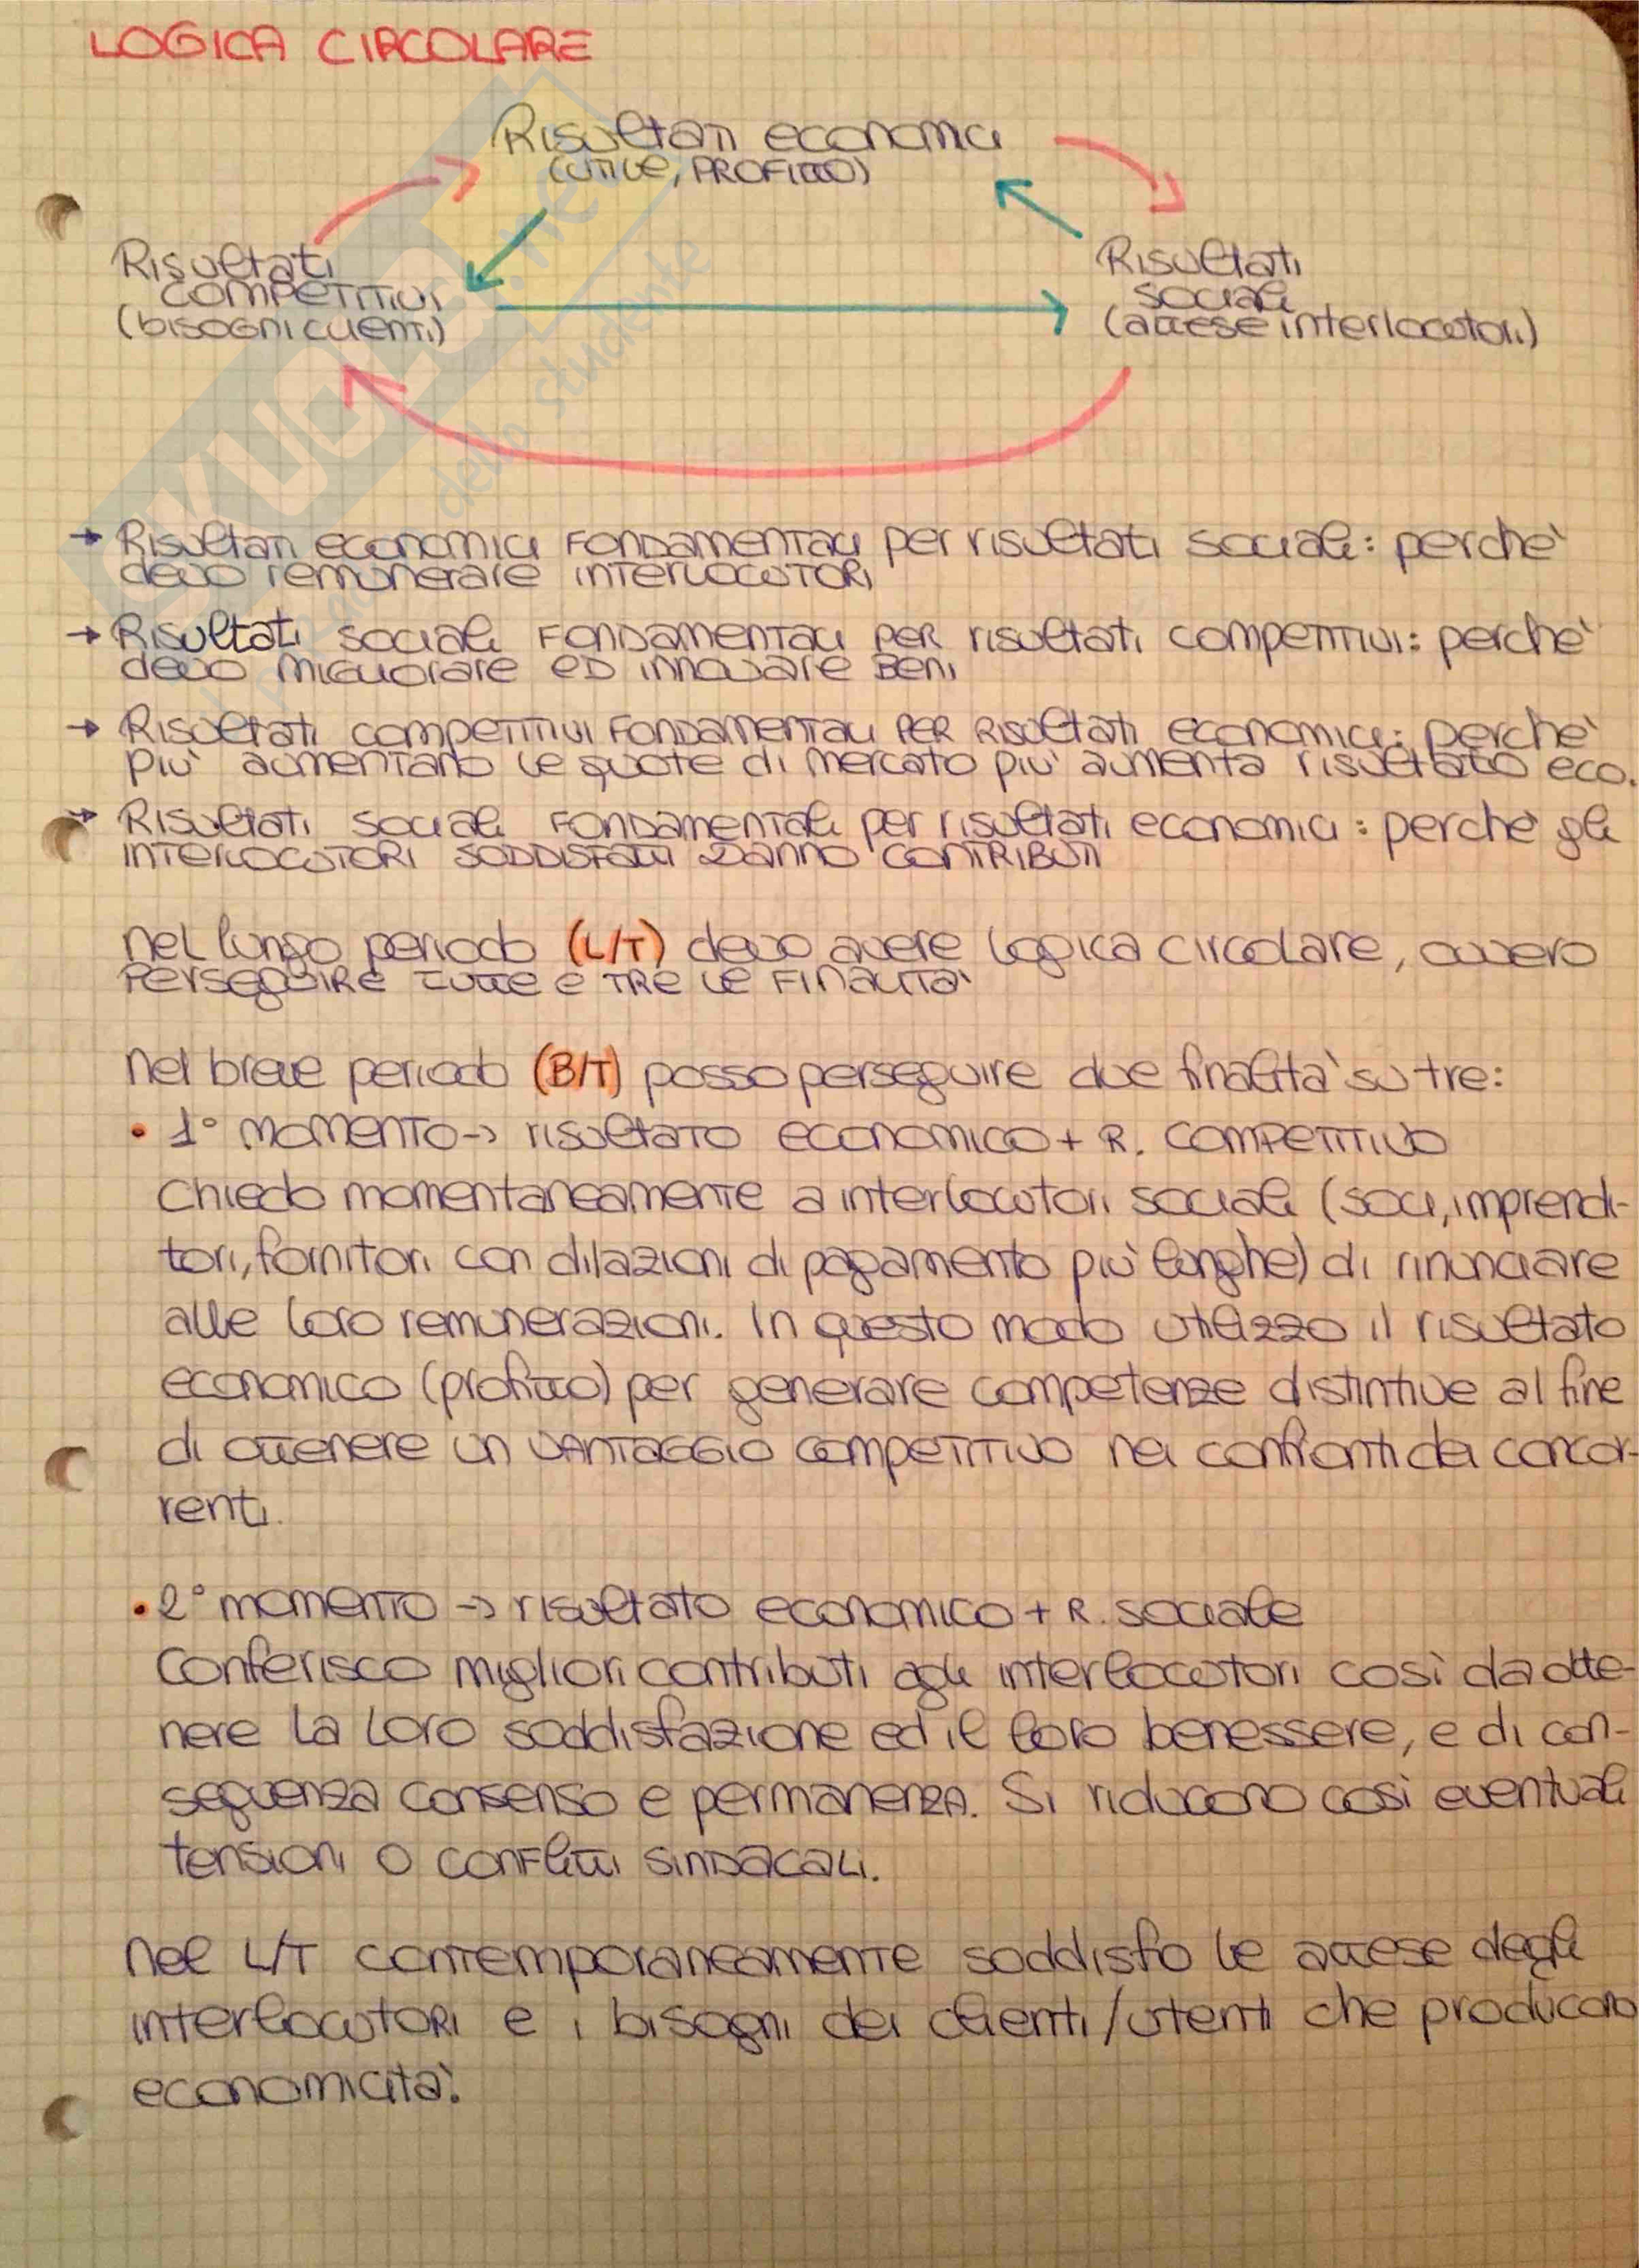 LOGICA CIRCOLARE
Risultati economici
(UTILE, PROFITTO)
Risultati
COMPETITIVI
(bISOGNI CLIENTI)
Risultati
sociali
(attese interlocutori)
SKUOLA.net
dello studente
→ Risultati economici FONDAMENTALI per risultati sociali: perchè
devo remunerare INTERLOCUTORI
→ Risultati sociali FONDAMENTALI PER risultati COMPETITIVI: perchè
devo migliorare ED innovare Beni
→ Risultati COMPETITIVI FONDAMENTALI PER RISULTATI economici: perchè
più aumentano le quote di mercato più aumenta risultato eco.
→ RISULTATI sociali FONDAMENTALI per risultati economici: perchè gli
INTERLOCUTORI SODDISFATTI DANNO CONTRIBUTI
nel lungo periodo (L/T) devo avere logica circolare, ovvero
PERSEGUIRE TUTTE E TRE LE FINALITÀ
Nel breve periodo (B/T) posso perseguire due finalità su tre:
• 1° MOMENTO → risultato economico + R. COMPETITIVO
Chiedo momentaneamente a interlocutori sociali (soci, imprendi-
tori, fornitori con dilazioni di pagamento più lunghe) di rinunciare
alle loro remunerazioni. In questo modo utilizzo il risultato
economico (profitto) per generare competenze distintive al fine
di ottenere un VANTAGGIO COMPETITIVO nei confronti dei concor-
renti.
• 2° momento → risultato economico + R. sociale
Conferisco migliori contributi agli interlocutori così da otte-
nere la loro soddisfazione ed il loro benessere, e di con-
seguenza consenso e permanenza. Si riducono così eventuali
tensioni o conflitti SINDACALI.
Nel L/T contemporaneamente soddisfo le attese degli
interlocutori e i bisogni dei clienti/utenti che producono
economicità.